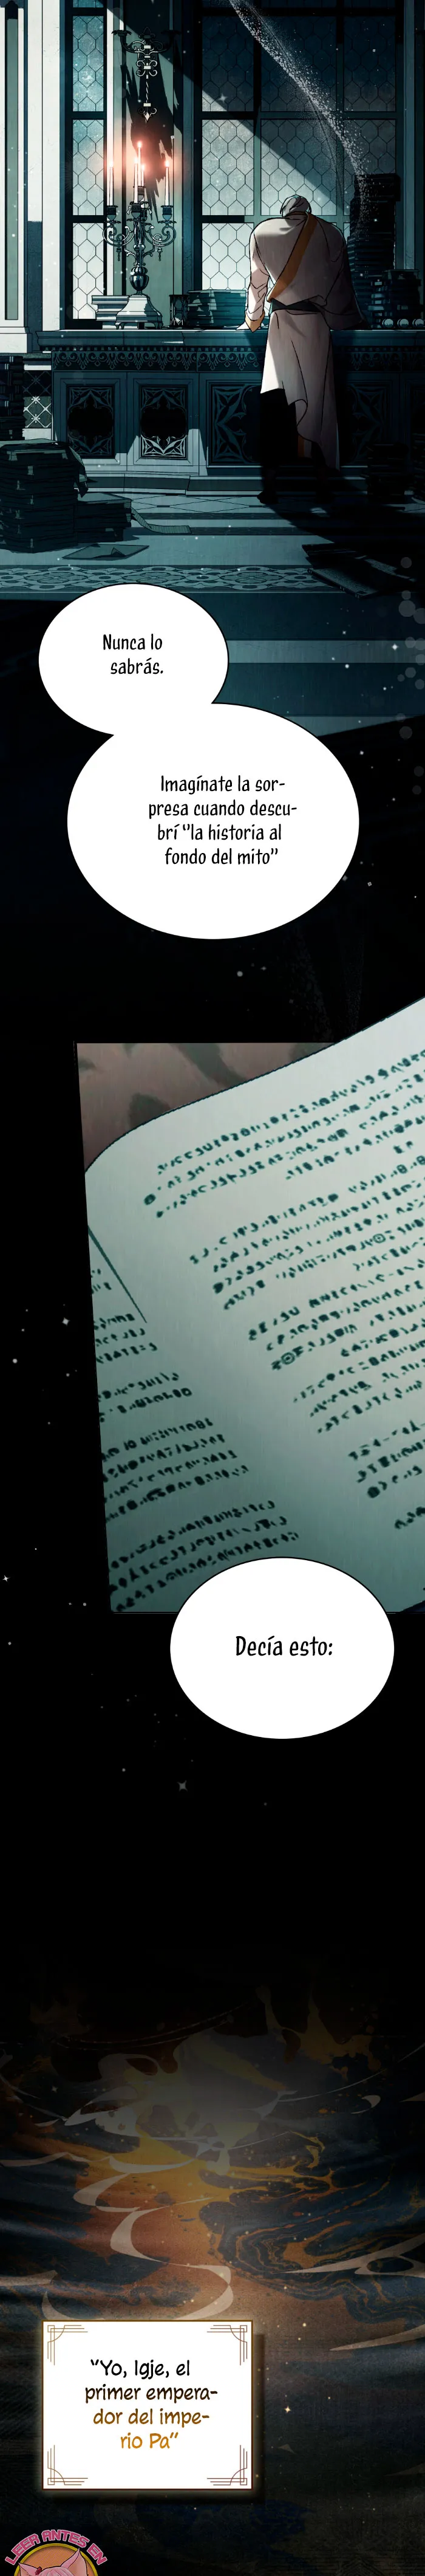 Nunca lo
sabrás.
Imagínate la sor-
presa cuando descu-
brí "la historia al
fondo del mito"
Decía esto:
"Yo, Igje, el
primer empera-
dor del impe-
rio Pa"
LEER ANTES EN